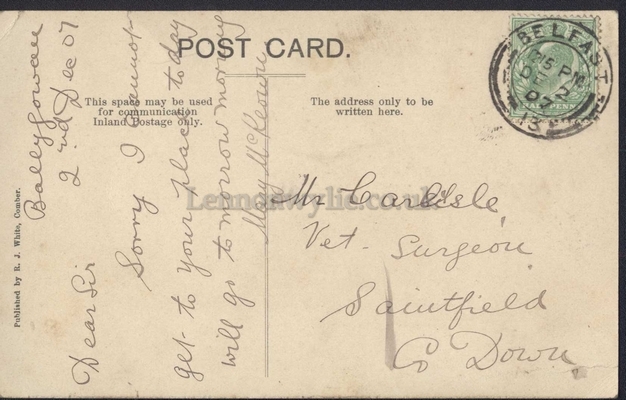 POST CARD.
This space may be used
for communication
Inland Postage only.
The address only to be
written here.
BELFAST
15 PM
DE 2
07
13
HALFPENNY
Ballygowan
2nd Dec 07
Dear Sir
Sorry I cannot
get to your place to day
will go to morrow morning
Mary McKeown
Mr Carlisle
Vet. Surgeon
Saintfield
Co Down
Published by R. J. White, Comber.
Lennonwylie.co.uk